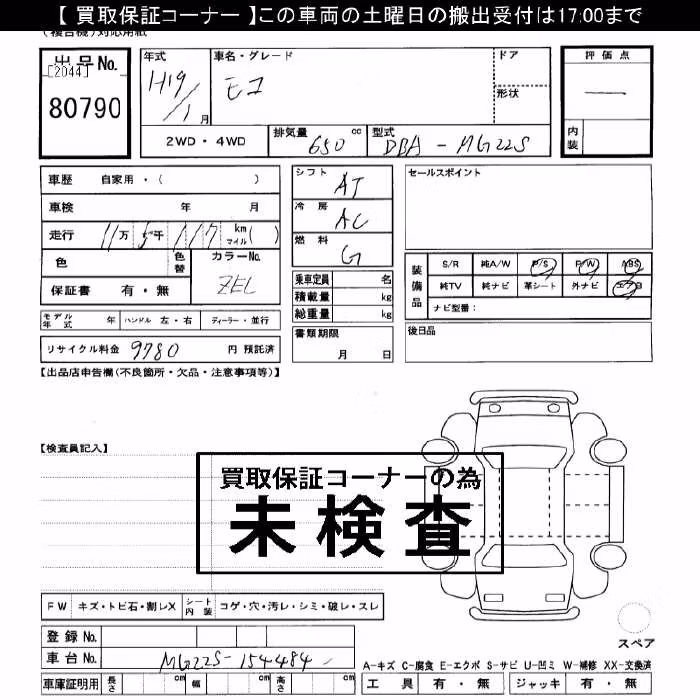 【 買取保証コーナー 】この車両の土曜日の搬出受付は17:00まで
(複合機)対応用紙
出品No.
[2044]
80790
年式
H19/1月
車名・グレード
モコ
ドア
形状
評価点
内装
2WD・4WD
排気量 650 cc
型式 DBA-MG22S
車歴 自家用・( )
車検 年 月
走行 11万5千117 km マイル( )
色
色替
カラーNo.
ZEL
保証書 有・無
シフト AT
冷房 AC
燃料 G
乗車定員 名
積載量 kg
総重量 kg
書類期限 月 日
セールスポイント
装備品
S/R 純A/W P/S P/W ABS
純TV 純ナビ 革シート 外ナビ エアB
ナビ型番:
後日品
モデル年式 年 ハンドル 左・右 ディーラー・並行
リサイクル料金 9780 円 預託済
【出品店申告欄(不良箇所・欠品・注意事項等)】
【検査員記入】
買取保証コーナーの為
未検査
FW キズ・トビ石・割レX シート内装 コゲ・穴・汚レ・シミ・破レ・スレ
登録No.
車台No. MG22S-154484
車庫証明用 長さ cm 幅 cm 高さ cm
スペア
A-キズ C-腐食 E-エクボ S-サビ U-凹ミ W-補修 XX-交換済
工具 有・無 ジャッキ 有・無